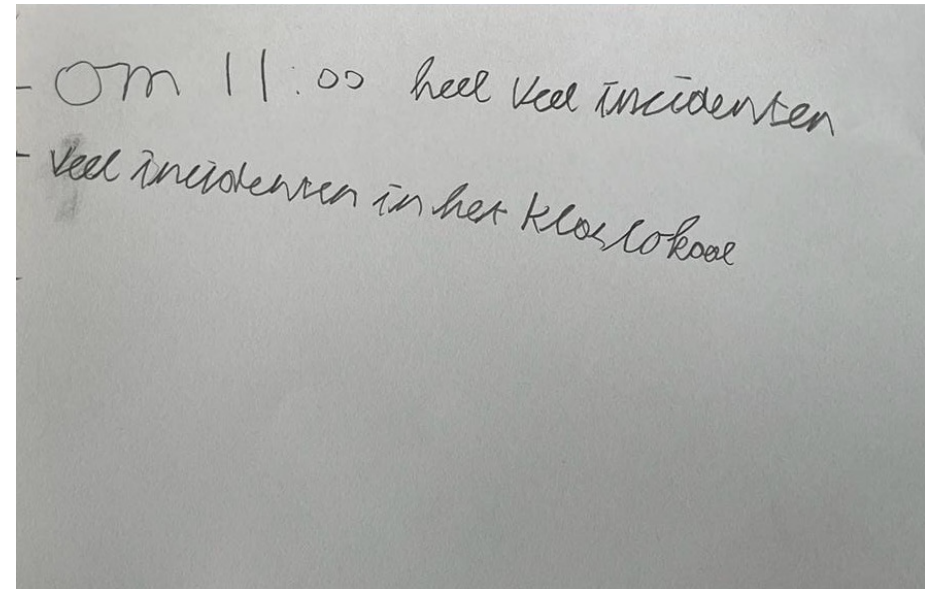 - Om 11:00 heel veel incidenten
- Veel incidenten in het klaslokaal
-